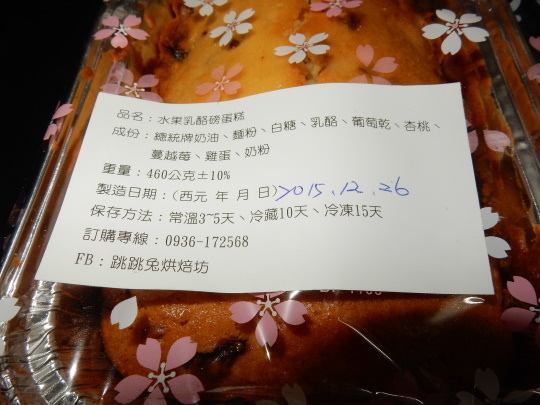 品名：水果乳酪磅蛋糕
成份：總統牌奶油、麵粉、白糖、乳酪、葡萄乾、杏桃、
蔓越莓、雞蛋、奶粉
重量：460公克±10%
製造日期：(西元 年 月 日) 2015.12.26
保存方法：常溫3~5天、冷藏10天、冷凍15天
訂購專線：0936-172568
FB：跳跳兔烘焙坊